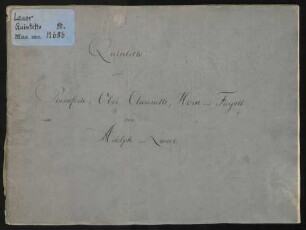 Lauer
Quintette
Mus. ms. 12615
Quintetto
Pianoforte, Oboe, Clarinette, Horn und Fagott
von
Adolph von Lauer